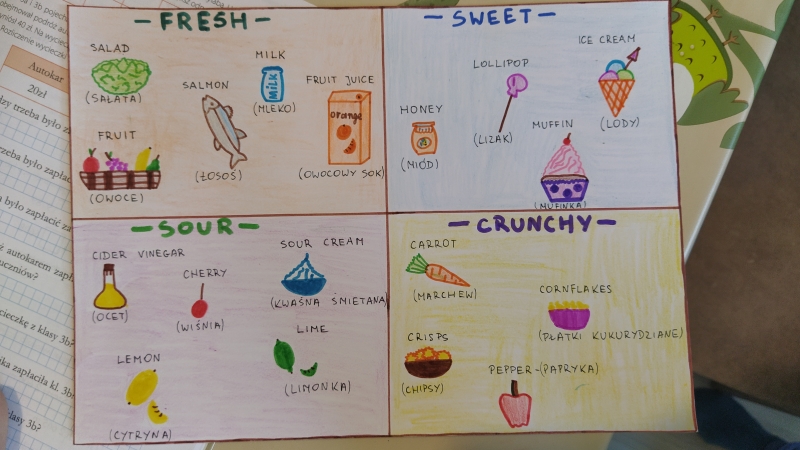 - FRESH -
SALAD
(SAŁATA)
SALMON
(ŁOSOŚ)
MILK
MILK
(MLEKO)
FRUIT JUICE
orange
(OWOCOWY SOK)
FRUIT
(OWOCE)
- SWEET -
HONEY
(MIÓD)
LOLLIPOP
(LIZAK)
MUFFIN
(MUFINKA)
ICE CREAM
(LODY)
- SOUR -
CIDER VINEGAR
(OCET)
CHERRY
(WIŚNIA)
SOUR CREAM
(KWAŚNA ŚMIETANA)
LIME
(LIMONKA)
LEMON
(CYTRYNA)
- CRUNCHY -
CARROT
(MARCHEW)
CORNFLAKES
(PŁATKI KUKURYDZIANE)
CRISPS
(CHIPSY)
PEPPER-(PAPRYKA)
Autokar
20zł
trzeba było
trzeba było
było zapłacić za
autokarem zapł
uczniów?
z klasy 3b?
zapłaciła kl. 3b
klasy 3b?